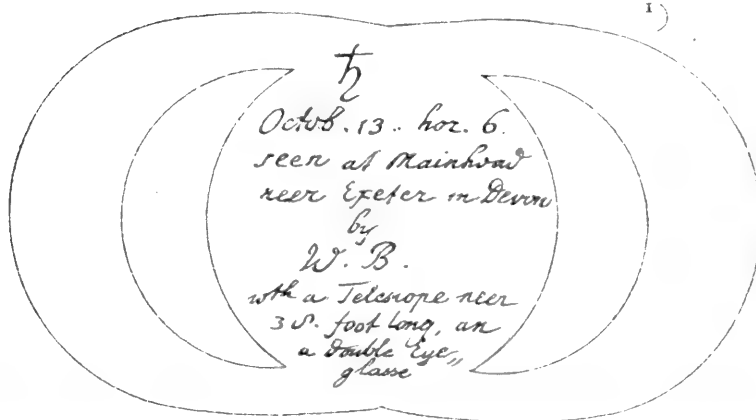 1)
♄
Octob. 13. hor. 6.
seen at Mainhead
neer Exeter in Devon
by
W. B.
wth a Telescope neer
foot long, an
a double Eye„
glasse